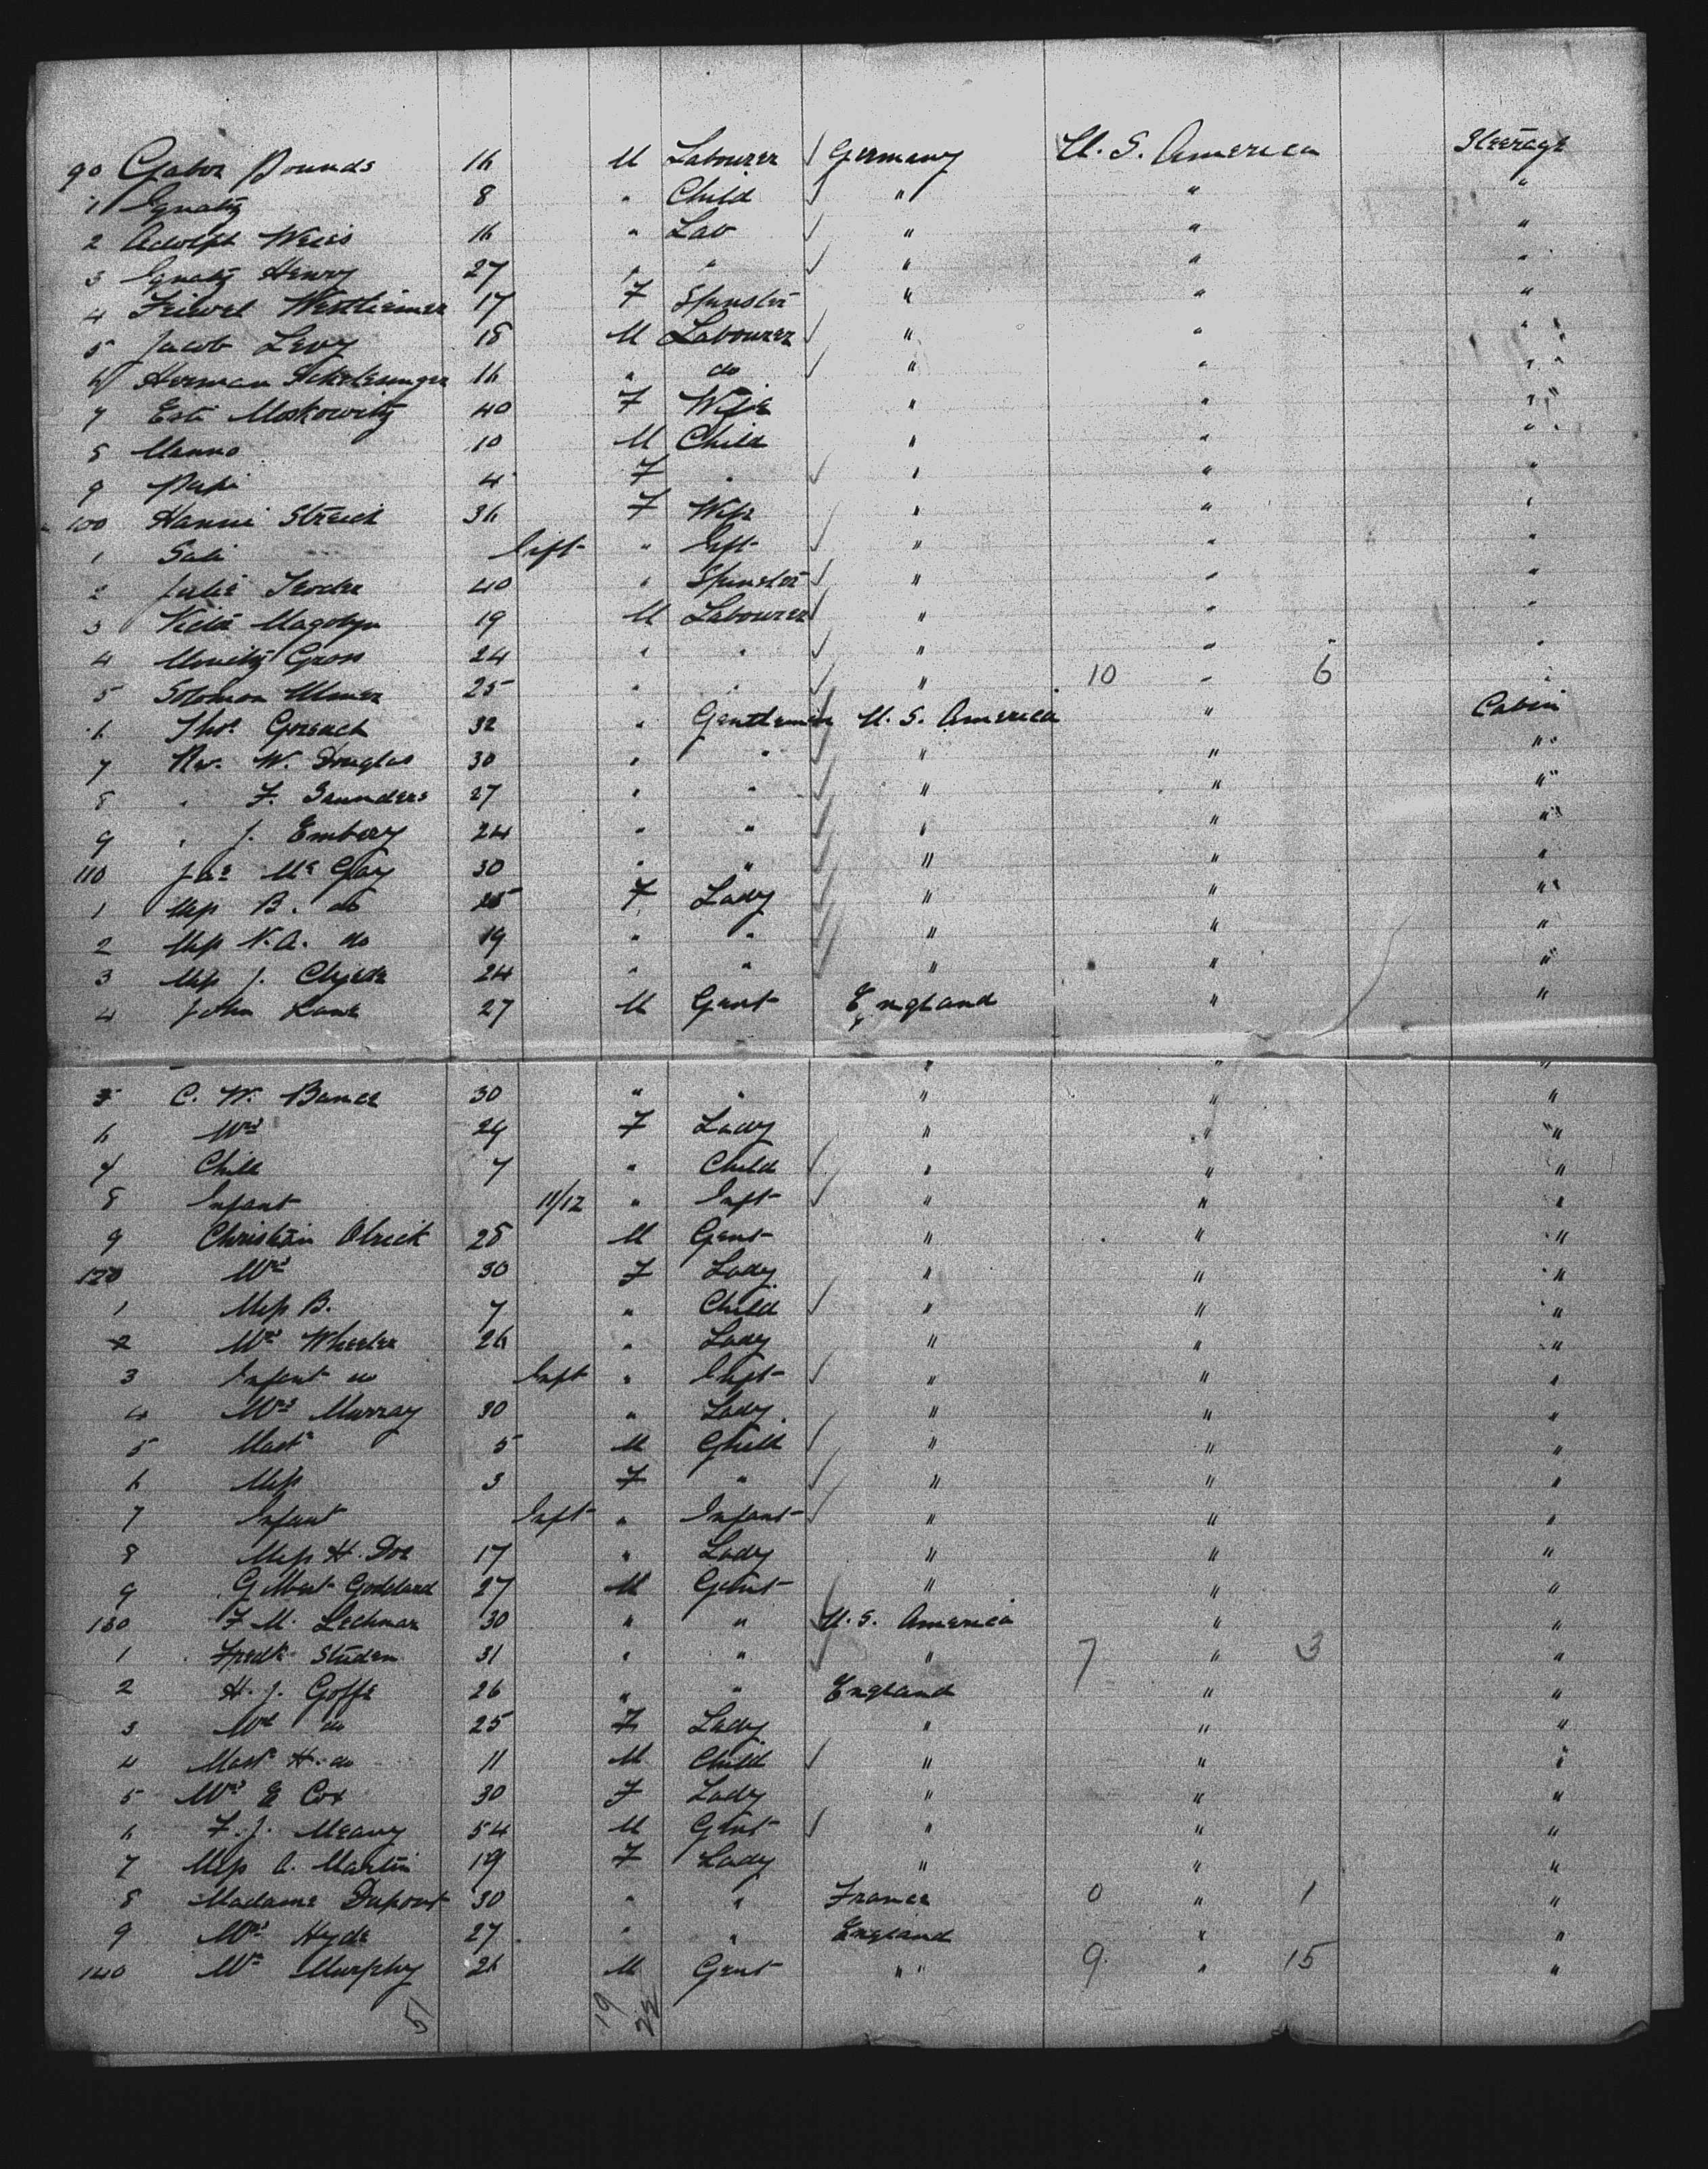 90 Gabor Pounds 16 M Labourer Germany U. S. America Steerage
1 Ignatz 8 " Child " " "
2 Adolph Weiss 16 " Lab " " "
3 Ignatz Henry 27 " " " " "
4 17 F Spinster " " "
5 Jacob Levy 18 M Labourer " " "
6 Herman Schlesinger 16 " do " " "
7 Esti Moskowitz 40 F Wife " " "
8 Manno 10 M Child " " "
9 Pepi 4 F " " " "
100 Hanni Streich 36 F Wife " " "
1 Sali Inft " Inft " " "
2 Julie 40 " Spinster " " "
3 19 M Labourer " " "
4 Moritz Gross 24 " " " " "
5 Solomon Ulmer 25 " " " 10 " 6 "
6 Thos 32 " Gentleman U. S. America " Cabin
7 Rev. W. Douglas 30 " " " " "
8 " F. Saunders 27 " " " " "
9 " J. Embery 24 " " " " "
110 Jas Mc Gay 30 " " " " "
1 Miss B. do 25 F Lady " " "
2 Miss N. A. do 19 " " " " "
3 Miss J. Clyde 24 " " " " "
4 John Lane 27 M Gent England " "
" " "
5 C. W. Bance 30 " " " " "
6 Mrs 29 F Lady " " "
7 Child 7 " Child " " "
8 Infant 11/12 " Inft " " "
9 Christian Olrick 28 M Gent " " "
120 Mrs 30 F Lady " " "
1 Miss B. 7 " Child " " "
2 Mrs Wheeler 26 " Lady " " "
3 Infant do Inft " Inft " " "
4 Mrs Murray 30 " Lady " " "
5 Mastr 5 M Child " " "
6 Miss 3 F " " " "
7 Infant Inft " Infant " " "
8 Miss H. Doe 17 " Lady " " "
9 Gilbert Goddard 27 M Gent " " "
130 F. M. Lechmar 30 " " U. S. America " "
1 Fredk Studen 31 " " " 7 " 3 "
2 H. J. Goffe 26 " " England " "
3 Mrs do 25 F Lady " " "
4 Mastr H. do 11 M Child " " "
5 Mrs E Cox 30 F Lady " " "
6 F. J. Meany 54 M Gent " " "
7 Miss A. Martin 19 F Lady " " "
8 Madame Dupont 30 " " France 0 " 1 "
9 Mrs Hyde 27 " " England " "
140 Mr Murphy 26 M Gent " " 9 " 15 "
51 19 22